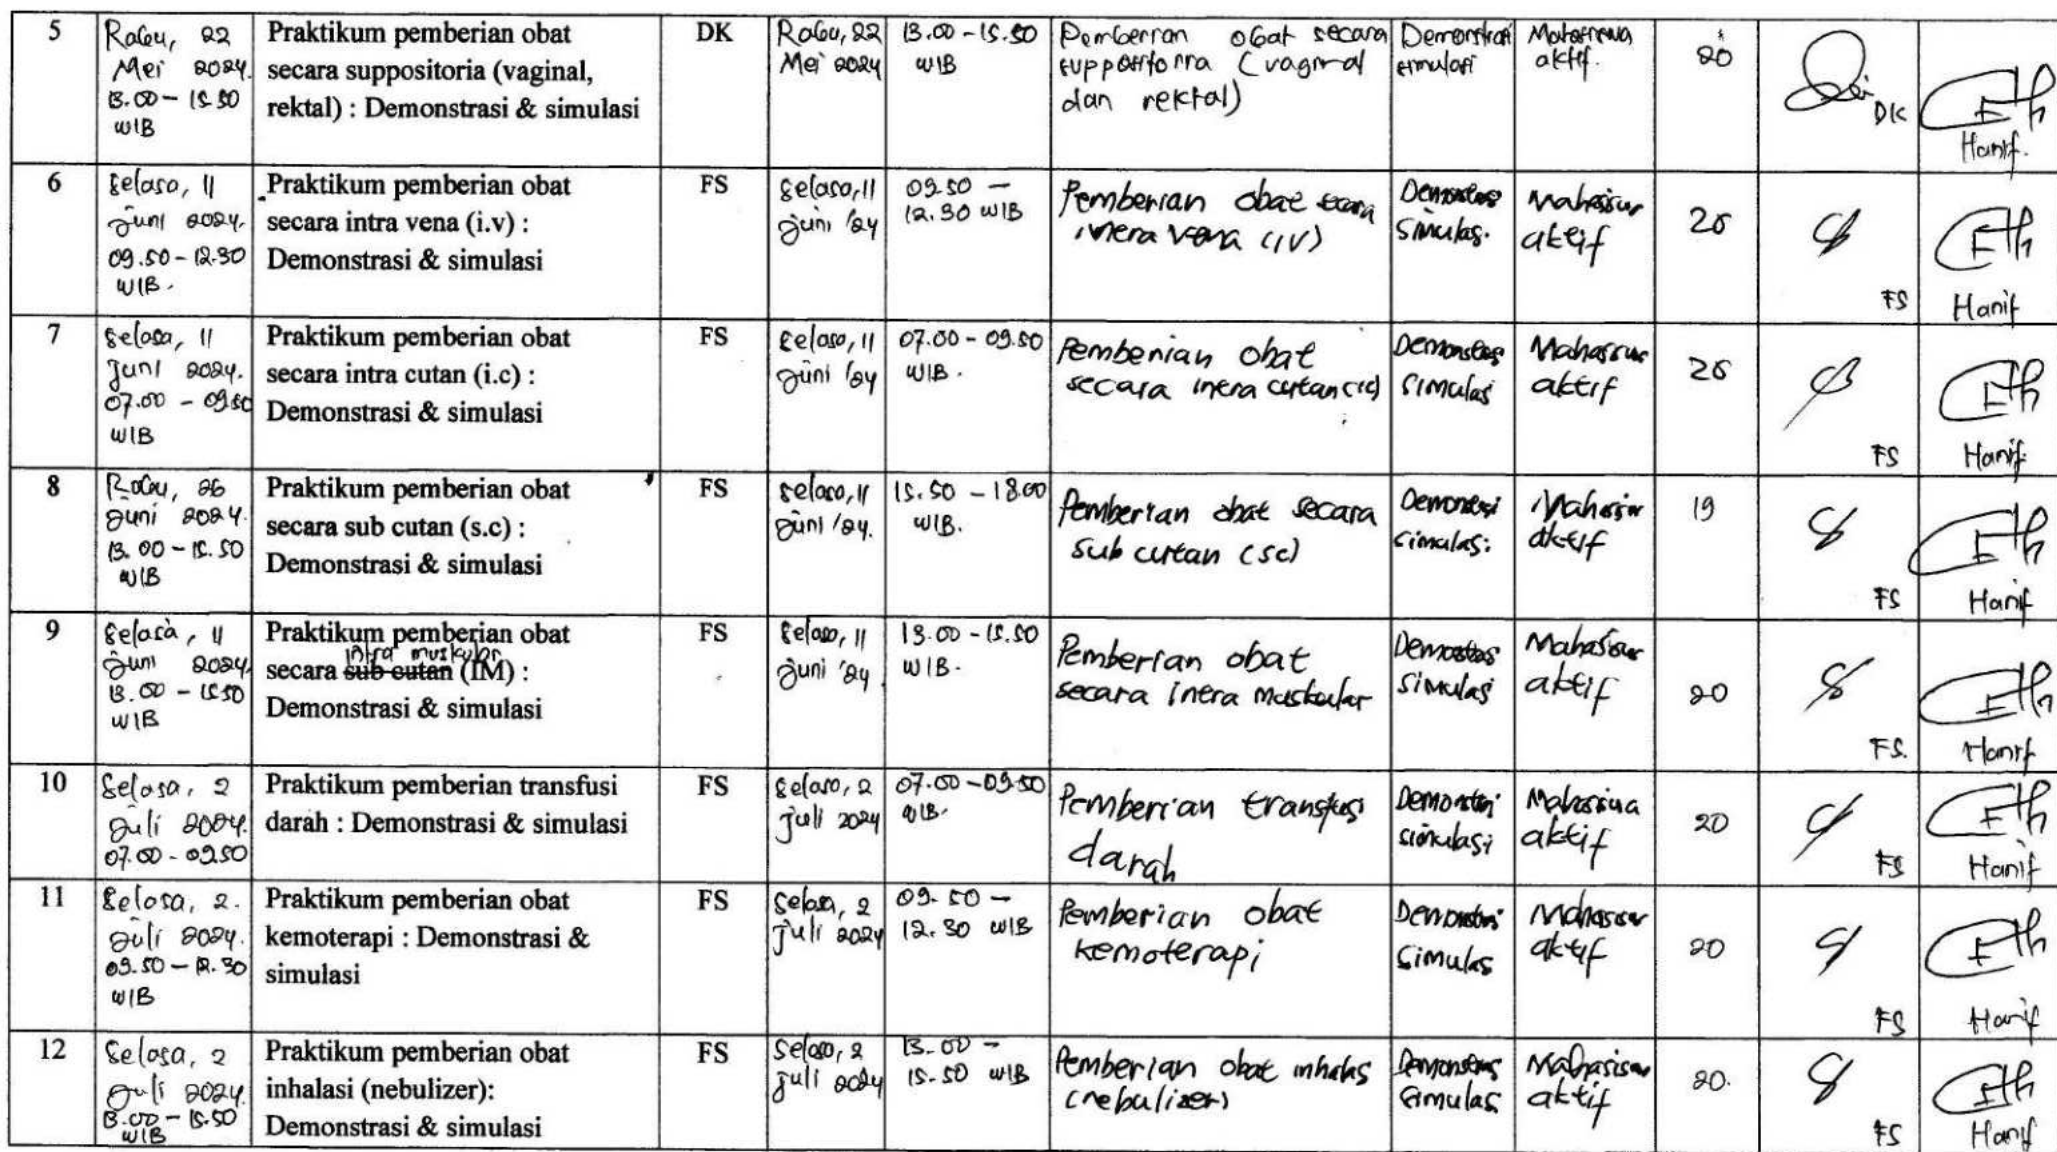 5
Rabu, 22
Mei 2024.
13.00 - 15.50
WIB
Praktikum pemberian obat
secara suppositoria (vaginal,
rektal) : Demonstrasi & simulasi
DK
Rabu, 22
Mei 2024
13.00 - 15.50
WIB
Pemberian obat secara
suppositoria (vaginal
dan rektal)
Demonstrasi
simulasi
Mahasiswa
aktif.
20
DK
Hanif.
6
Selasa, 11
Juni 2024.
09.50 - 12.30
WIB.
Praktikum pemberian obat
secara intra vena (i.v) :
Demonstrasi & simulasi
FS
Selasa, 11
Juni '24
09.50 -
12.30 WIB
Pemberian obat secara
intera vena (IV)
simulas.
aktif
FS
Hanif
7
Selasa, 11
Juni 2024.
07.00 - 09.50
WIB
Praktikum pemberian obat
secara intra cutan (i.c) :
Demonstrasi & simulasi
FS
Selasa, 11
Juni '24
07.00 - 09.50
WIB.
Pemberian obat
secara intera cutan
simulasi
aktif
FS
Hanif
8
Rabu, 26
Juni 2024.
13.00 - 15.50
WIB
Praktikum pemberian obat
secara sub cutan (s.c) :
Demonstrasi & simulasi
FS
Selasa, 11
Juni '24.
15.50 - 18.00
WIB.
Pemberian obat secara
sub cutan (sc)
simulasi
aktif
19
FS
Hanif
9
Selasa, 11
Juni 2024
13.00 - 15.50
WIB
Praktikum pemberian obat
intra muskular
secara sub cutan (IM) :
Demonstrasi & simulasi
FS
Selasa, 11
Juni '24
13.00 - 15.50
WIB.
Pemberian obat
secara intera muskular
simulasi
aktif
20
FS.
Hanif
10
Selasa, 2
Juli 2024.
07.00 - 09.50
Praktikum pemberian transfusi
darah : Demonstrasi & simulasi
FS
Selasa, 2
Juli 2024
07.00 - 09.50
WIB.
Pemberian transfusi
darah
simulasi
aktif
20
FS
Hanif
11
Selasa, 2.
Juli 2024.
09.50 - 12.30
WIB
Praktikum pemberian obat
kemoterapi : Demonstrasi &
simulasi
FS
Selasa, 2
Juli 2024
09.50 -
12.30 WIB
Pemberian obat
kemoterapi
simulas
aktif
20
FS
Hanif
12
Selasa, 2
Juli 2024.
13.00 - 15.50
WIB
Praktikum pemberian obat
inhalasi (nebulizer):
Demonstrasi & simulasi
FS
Selasa, 2
Juli 2024
13.00 -
15.50 WIB
Pemberian obat inhalas
(nebulizer)
simulas
aktif
20.
FS
Hanif